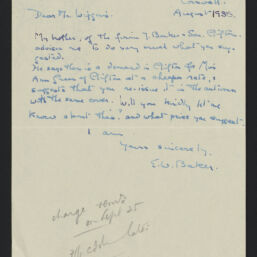 August 1935.
Dear Mr. Wiggins.
My brother, of the firm of Baker & Son, Clifton
advises me to do very much what you sug-
gested.
He says there is a demand in Clifton for Miss
Ann Green of Clifton at a cheaper rate, &
suggests that you re-issue it in the autumn
with the same cover. Will you kindly let me
know about this, and what price you suggest.
I am
Yours sincerely,
E. W. Baker.
change
on Sept 25